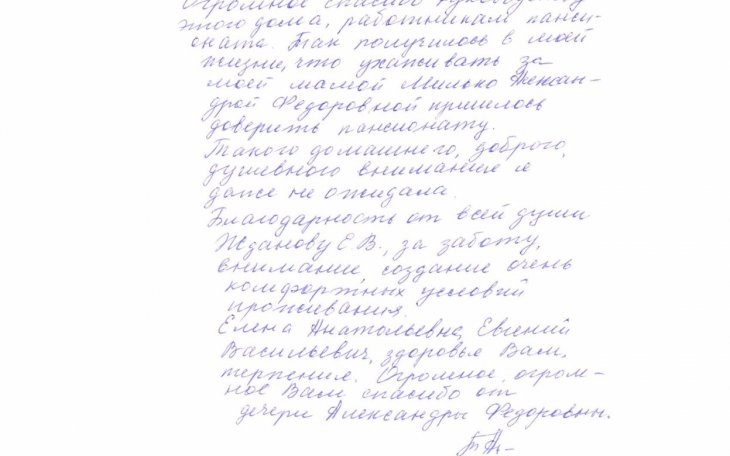 Огромное спасибо руководству
этого дома, работникам панси-
оната. Так получилось в моей
жизни, что ухаживать за
моей мамой Милько Алексан-
дрой Федоровной пришлось
доверить пансионату.
Такого домашнего, доброго,
душевного внимания я
даже не ожидала.
Благодарность от всей души
Жданову Е.В., за заботу,
внимание, создание очень
комфортных условий
проживания.
Елена Анатольевна, Евгений
Васильевич, здоровья Вам,
терпения. Огромное, огром-
ное Вам спасибо от
дочери Александры Федоровны.